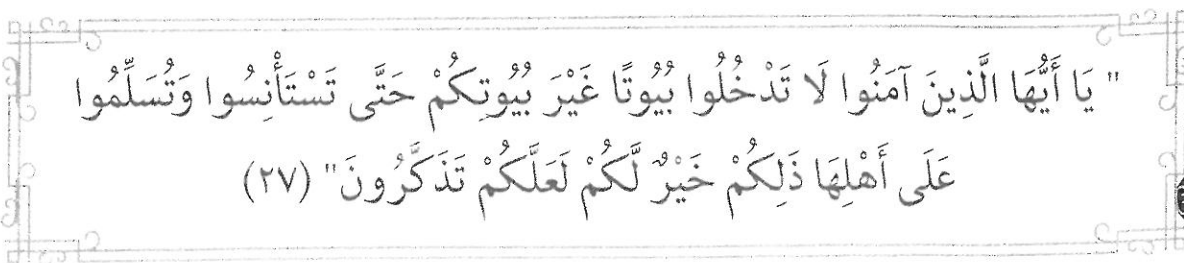 " يَا أَيُّهَا الَّذِينَ آمَنُوا لَا تَدْخُلُوا بُيُوتًا غَيْرَ بُيُوتِكُمْ حَتَّى تَسْتَأْنِسُوا وَتُسَلِّمُوا
عَلَى أَهْلِهَا ذَلِكُمْ خَيْرٌ لَّكُمْ لَعَلَّكُمْ تَذَكَّرُونَ" (٢٧)